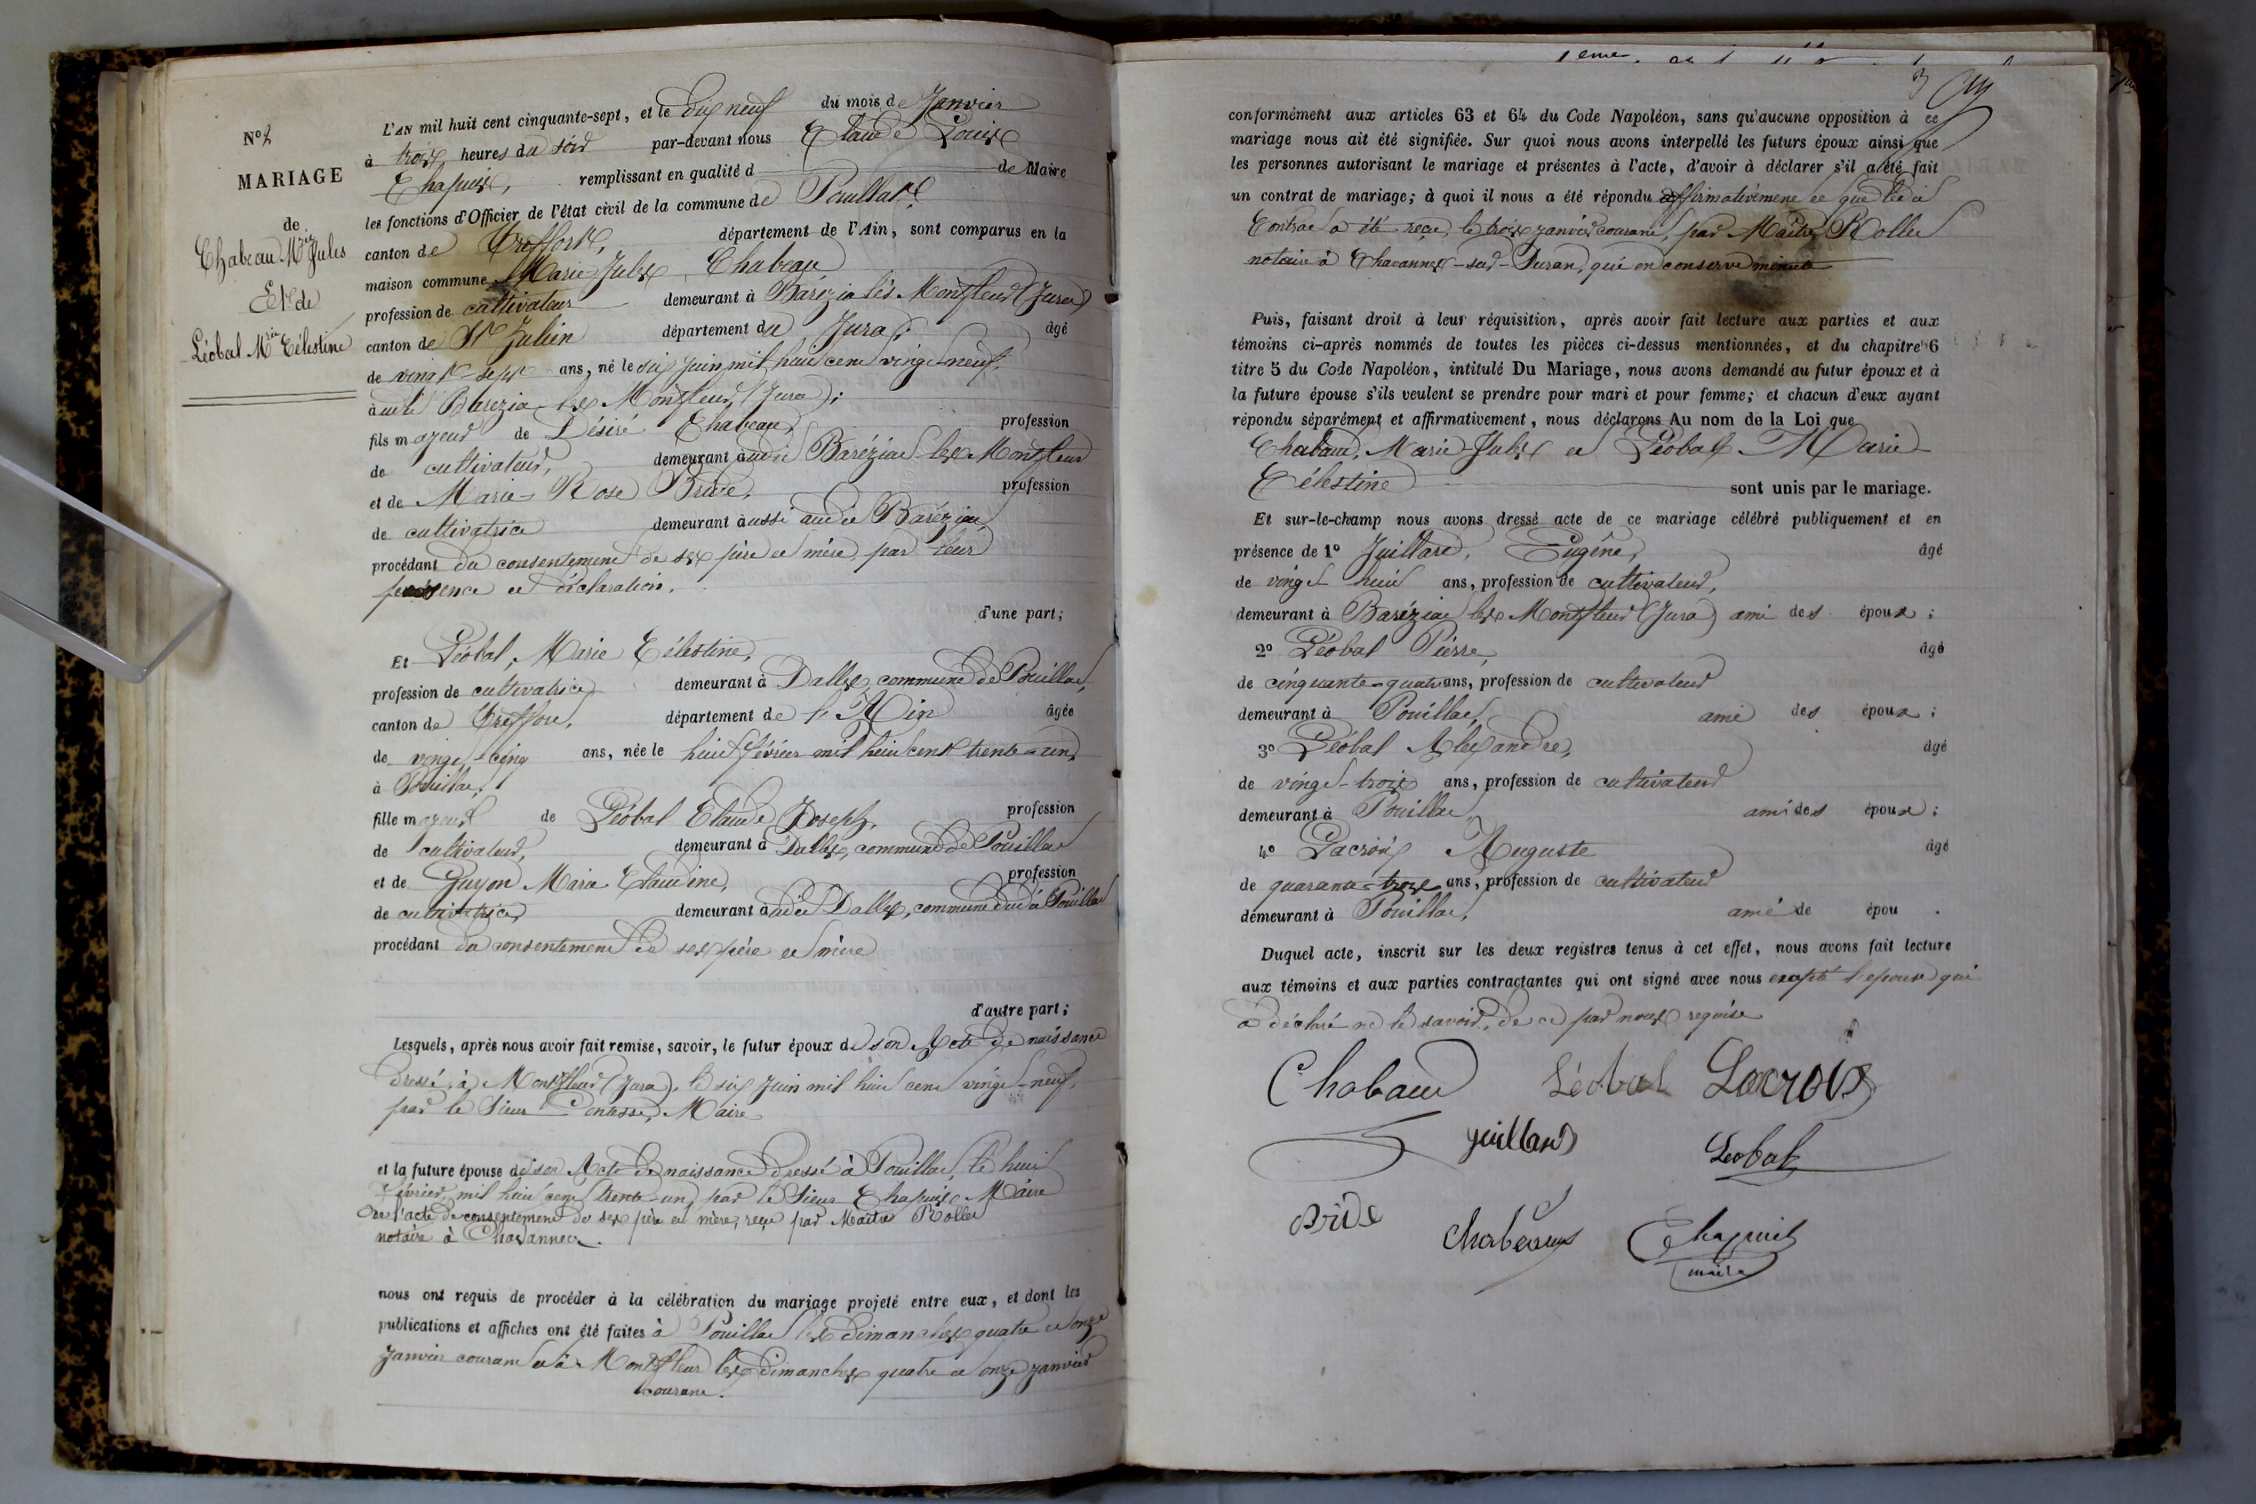 N° 2
MARIAGE
de
Chabeau M.rie Jules
Et de
Léobal M.rie Célestine
L'AN mil huit cent cinquante-sept, et le dix neuf du mois de Janvier
à trois heures du soir par-devant nous Claude Louis
Chapuis, remplissant en qualité d de Maire
les fonctions d'Officier de l'état civil de la commune de Pouillat,
canton de Treffort, département de l'Ain, sont comparus en la
maison commune Marie Jules Chabeau
profession de cultivateur demeurant à Barézia lès Montfleur (Jura)
canton de St Julien département du Jura; âgé
de vingt-sept ans, né le six juin mil huit cent vingt-neuf,
audit Barezia les Montfleur (Jura);
fils majeur de Désiré Chabeau, profession
de cultivateur, demeurant audit Baréziat les Montfleur
et de Marie-Rose Bride, profession
de cultivatrice demeurant aussi audit Baréziat,
procédant du consentement de ses père et mère, par leur
présence et déclaration.
d'une part;
Et Léobal, Marie Célestine,
profession de cultivatrice demeurant à Dalles, commune de Pouillat,
canton de Treffort, département de l'Ain âgée
de vingt-cinq ans, née le huit février mil huit cent trente-un,
à Pouillat,
fille majeure de Léobal Claude Joseph, profession
de cultivateur, demeurant à Dalles, commune de Pouillat
et de Guyon Marie Claudine, profession
de cultivatrice demeurant audit Dalles, commune dudit Pouillat
procédant du consentement de ses père et mère
d'autre part;
Lesquels, après nous avoir fait remise, savoir, le futur époux de son Acte de naissance
dressé, à Montfleur (Jura), le six Juin mil huit cent vingt-neuf,
par le Sieur Maire
et la future épouse de son Acte de naissance dressé à Pouillat, le huit
février, mil huit cent trente-un, par le Sieur Chapuis, Maire
de l'acte de consentement de ses père et mère, reçu par Maître Rollet
notaire à Chavannes.
nous ont requis de procéder à la célébration du mariage projeté entre eux, et dont les
publications et affiches ont été faites à Pouillat les dimanches quatre et onze
Janvier courant et à Montfleur les dimanches quatre et onze janvier
courant.
3
conformément aux articles 63 et 64 du Code Napoléon, sans qu'aucune opposition à ce
mariage nous ait été signifiée. Sur quoi nous avons interpellé les futurs époux ainsi que
les personnes autorisant le mariage et présentes à l'acte, d'avoir à déclarer s'il a été fait
un contrat de mariage; à quoi il nous a été répondu affirmativement et que ledit
Contrat a été reçu, le trois janvier courant, par Maître Rollet
notaire à Chavannes-sur-Suran, qui en conserve minute
Puis, faisant droit à leur réquisition, après avoir fait lecture aux parties et aux
témoins ci-après nommés de toutes les pièces ci-dessus mentionnées, et du chapitre 6
titre 5 du Code Napoléon, intitulé Du Mariage, nous avons demandé au futur époux et à
la future épouse s'ils veulent se prendre pour mari et pour femme; et chacun d'eux ayant
répondu séparément et affirmativement, nous déclarons Au nom de la Loi que
Chabeau, Marie Jules et Léobal Marie
Célestine sont unis par le mariage.
Et sur-le-champ nous avons dressé acte de ce mariage célébré publiquement et en
présence de 1° Juillard, Eugêne, âgé
de vingt-huit ans, profession de cultivateur,
demeurant à Baréziat les Montfleur (Jura) ami des époux;
2° Léobal Pierre, âgé
de cinquante-quatre ans, profession de cultivateur
demeurant à Pouillat, ami des époux;
3° Léobal Alexandre, âgé
de vingt-trois ans, profession de cultivateur
demeurant à Pouillat, ami des époux;
4° Lacroix Auguste âgé
de quarante-trois ans, profession de cultivateur
demeurant à Pouillat, ami de épou .
Duquel acte, inscrit sur les deux registres tenus à cet effet, nous avons fait lecture
aux témoins et aux parties contractantes qui ont signé avec nous excepté l'épouse qui
a déclaré ne le savoir, de ce par nous requise
Chabaud Léobal Lacroix
Juillard Leobal
Bride Chabeaux Chapuit
maire